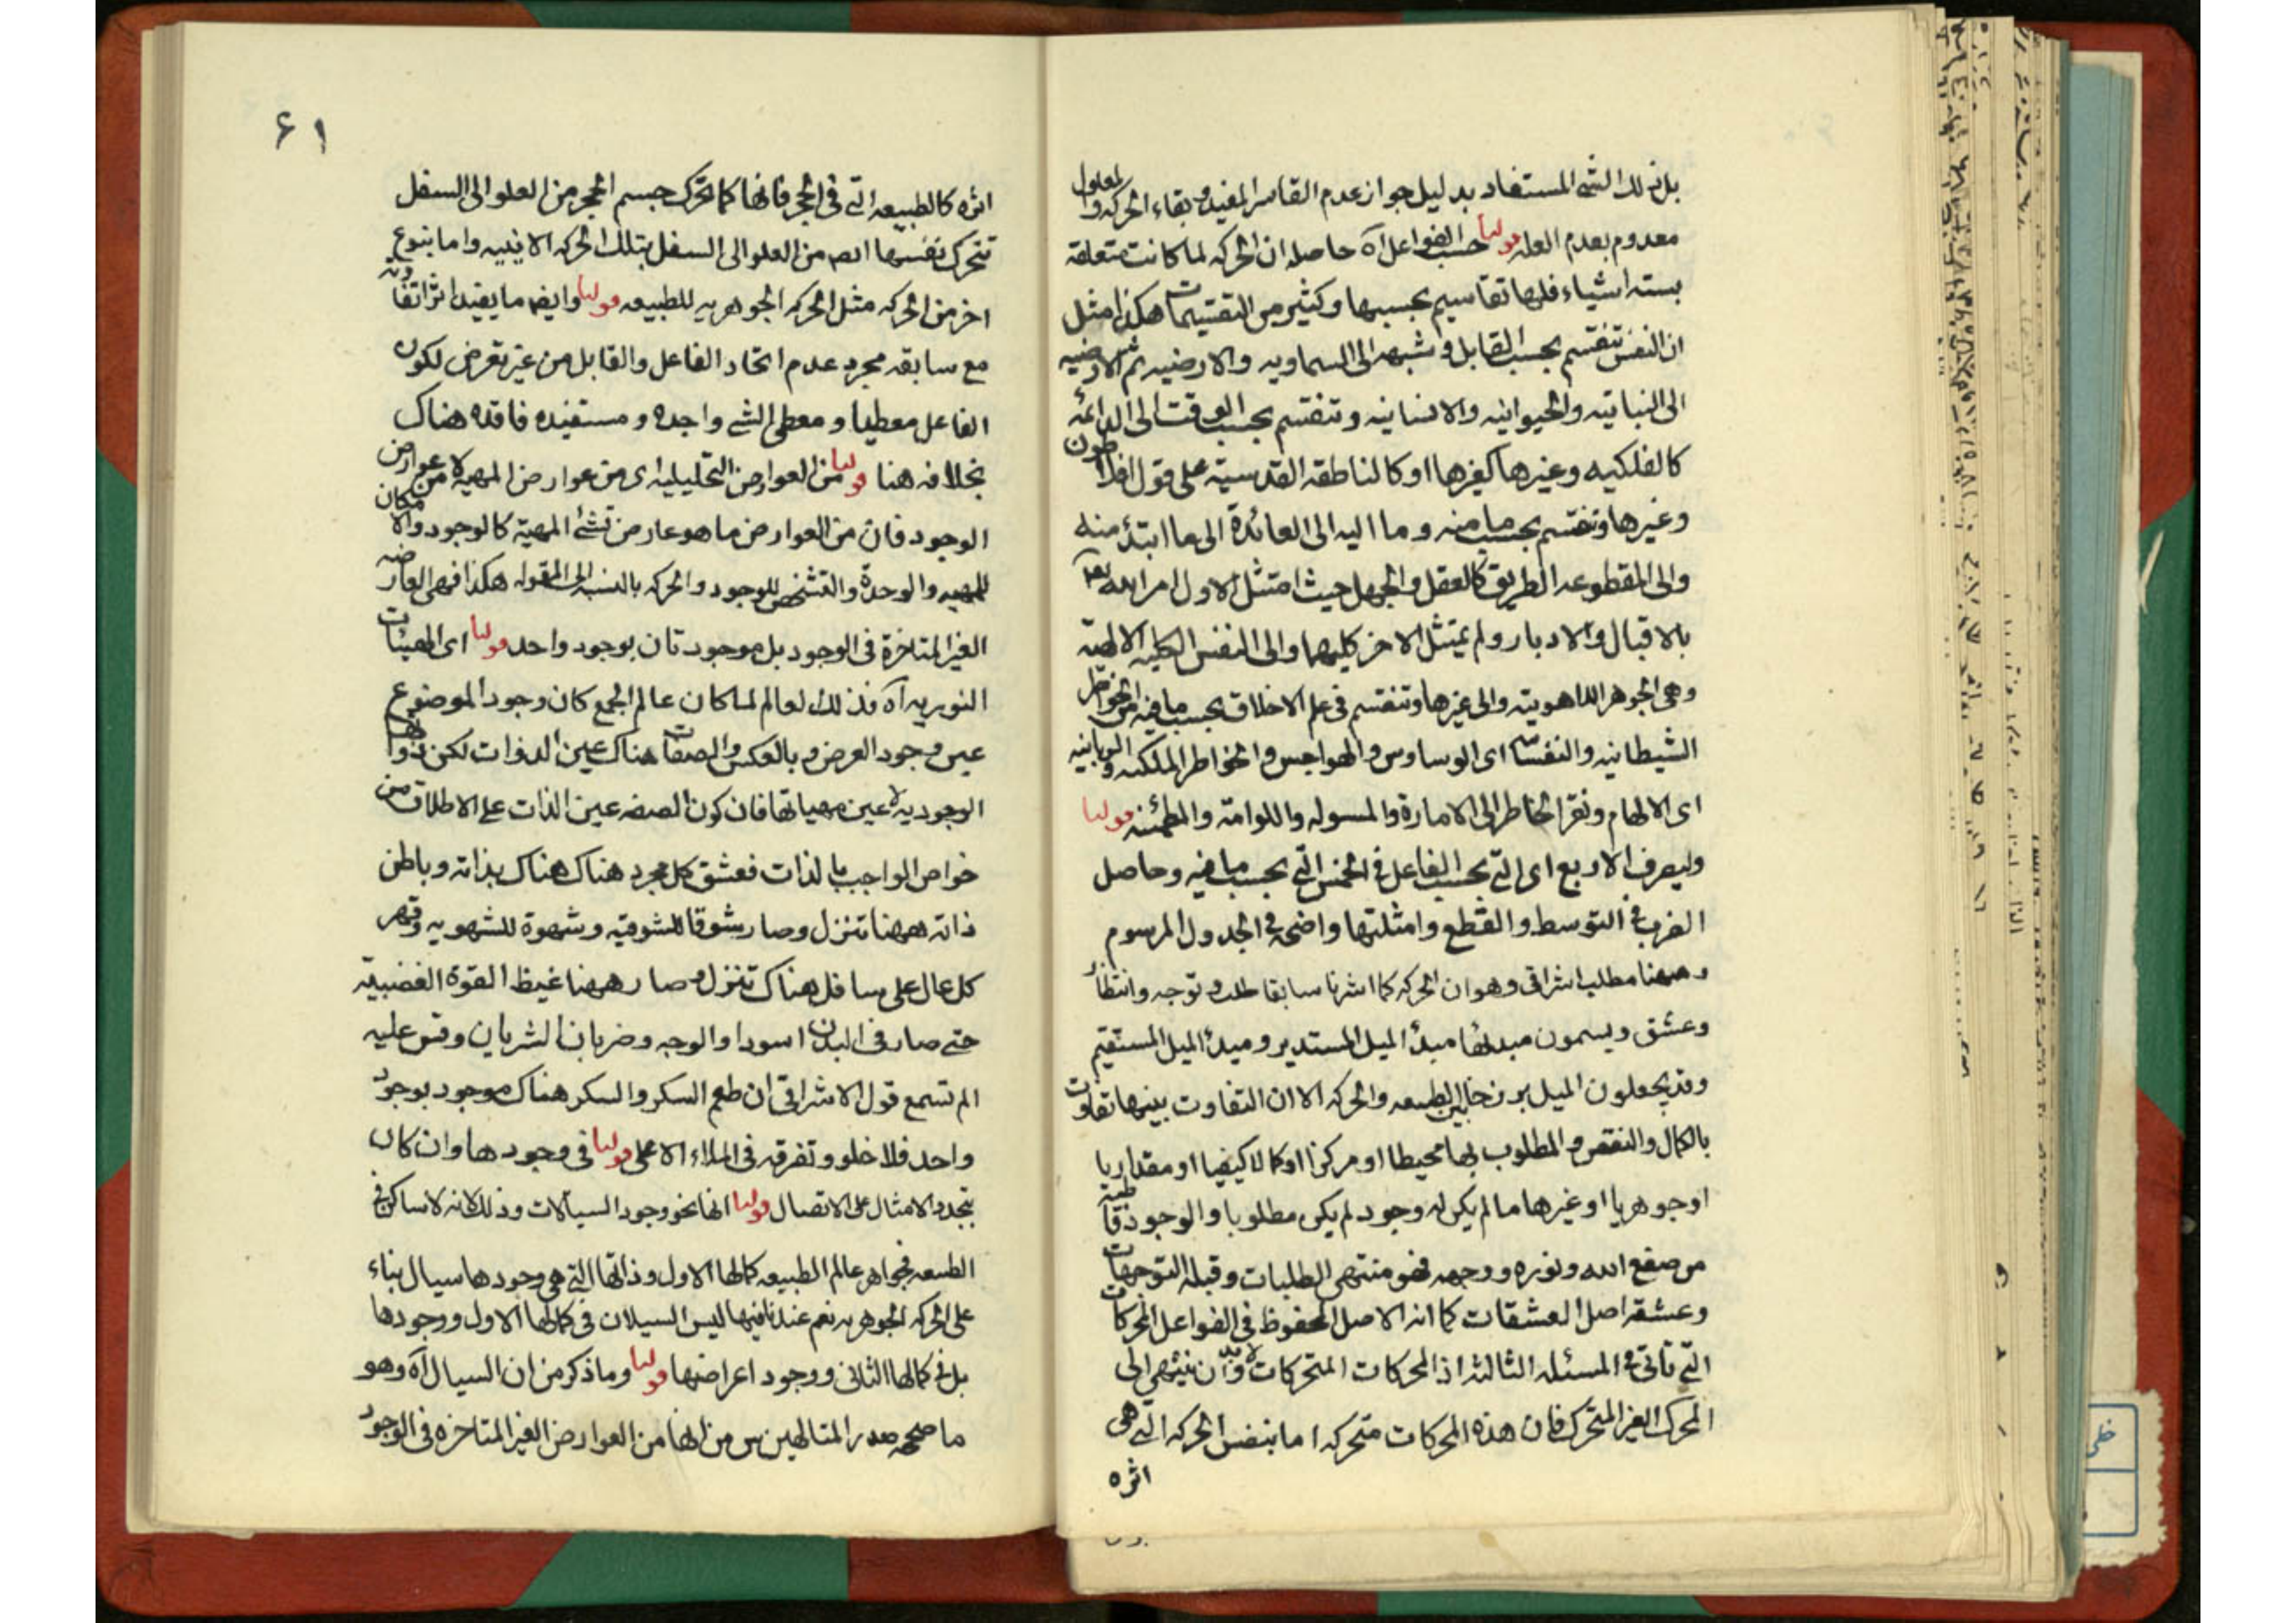 بل لذلك الشئ المستفاد بدليل جواز عدم القاسر المفيد و بقاء الحركه والمعلول
معدوم بعدم العله قولنا حسب الفواعل آه حاصله ان الحركه لما كانت متعلقه
بسته اشياء فلها تقاسيم بحسبها وكثير من التقسيمات هكذا مثل
ان النفس تنقسم بحسب القابل و شبهه الى السماويه والارضيه ثم الارضيه
الى النباتيه والحيوانيه والانسانيه وتنقسم بحسب الوقت الى الدائمه
كالفلكيه وغيرها كغيرها او كالناطقه القدسية على قول افلاطون
وغيرها وتنقسم بحسب ما منه وما اليه الى العائدة الى ما ابتدئ منه
والى المقطوعه الطريق كالعقل والجهل حيث امتثل الاول امر الله تعالى
بالاقبال والادبار ولم يمتثل الاخر كليهما والى النفس الكليه الالهيه
وهى الجوهر اللاهوتيه والى غيرها وتنقسم فى علم الاخلاق بحسب ما فيه من الخواطر
الشيطانيه والنفسانيه اى الوساوس والهواجس والخواطر الملكيه والربانيه
اى الالهام ونقر الخاطر الى الامارة والمسوله واللوامه والمطمئنه قولنا
وليصرف الاربع اى التى بحسب الفاعل فى الخمس التى بحسب ما فيه وحاصل
الضرب فى التوسط والقطع وامثلتها واضحه فى الجدول المرسوم
وههنا مطلب اشراقى وهو ان الحركه كما اشرنا سابقا طلب و توجه وانتظار
وعشق ويسمون مبدئها مبدأ الميل المستدير ومبدأ الميل المستقيم
وقد يجعلون الميل برزخا بين الطبيعه والحركه الا ان التفاوت بينها تفاوت
بالكمال والنقص والمطلوب بها محيطا او مركزا او كمالا كيفيا او مقداريا
او جوهريا او غيرها ما لم يكن له وجود لم يكن مطلوبا والوجود قاطبة
من صقع الله ونوره ووجهه فهو منتهى الطلبات وقبلة التوجهات
وعشقه اصل العشقات كما انه الاصل المحفوظ فى الفواعل المحركات
التى تاتى فى المسئله الثالثه اذ المحركات المتحركات لابد وان ينتهى الى
المحرك الغير المتحرك فان هذه المحركات متحركه اما بنفس الحركه التى هى
اثره
۶۱
اثره كالطبيعه التى فى الحجر فانها كما تحرك جسم الحجر من العلو الى السفل
تتحرك نفسها ايضا من العلو الى السفل بتلك الحركه الاينيه واما بنوع
اخر من الحركه مثل الحركه الجوهريه للطبيعه قولنا وايضا ما يفيد اثرا تفاوته
مع سابقه مجرد عدم اتحاد الفاعل والقابل من غير تعرض لكون
الفاعل معطيا و معطى الشئ واجده و مستفيده فاقده هناك
بخلافه هنا قولنا من العوارض التحليليه اى من عوارض المهية لا من عوارض
الوجود فان من العوارض ما هو عارض شئ المهية كالوجود والامكان
للمهيه والوحدة والتشخص للوجود والحركه بالنسبه الى المقوله هكذا فهى العارضه
الغير المتاخرة فى الوجود بل موجودتان بوجود واحد قولنا اى الهيئات
النوريه آه فذلك العالم لما كان عالم الجمع كان وجود الموضوع
عين وجود العرض و بالعكس والصفات هناك عين الذوات لكن ذواتها
الوجوديه لا عين مهياتها فان كون الصفه عين الذات على الاطلاق من
خواص الواجب بالذات فعشق كل مجرد هناك هناك بذاته وباطن
ذاته ههنا تنزل وصار شوقا للشوقيه وشهوة للشهويه وقهر
كل عال على سافل هناك تنزل و صار ههنا غيظ القوة الغضبيه
حتى صار فى البدن اسودا والوجه وضربان الشريان وقس عليه
الم تسمع قول الاشراقى ان طعم السكر والسكر هناك موجود بوجود
واحد فلا خلو وتفرقه فى الملاء الاعلى قولنا فى وجودها وان كان
بتجدد الامثال على الاتصال قولنا انها نحو وجود السيالات وذلك لانه لا ساكن فى
الطبيعه فجواهر عالم الطبيعه كمالها الاول وذاتها التى هى وجودها سيال بناء
على الحركه الجوهريه نعم عند نافيها ليس السيلان فى كمالها الاول ووجودها
بل فى كمالها الثانى ووجود اعراضها قولنا وما ذكر من ان السيال آه وهو
ما صححه صدر المتالهين س من انها من العوارض الغير المتاخره فى الوجود